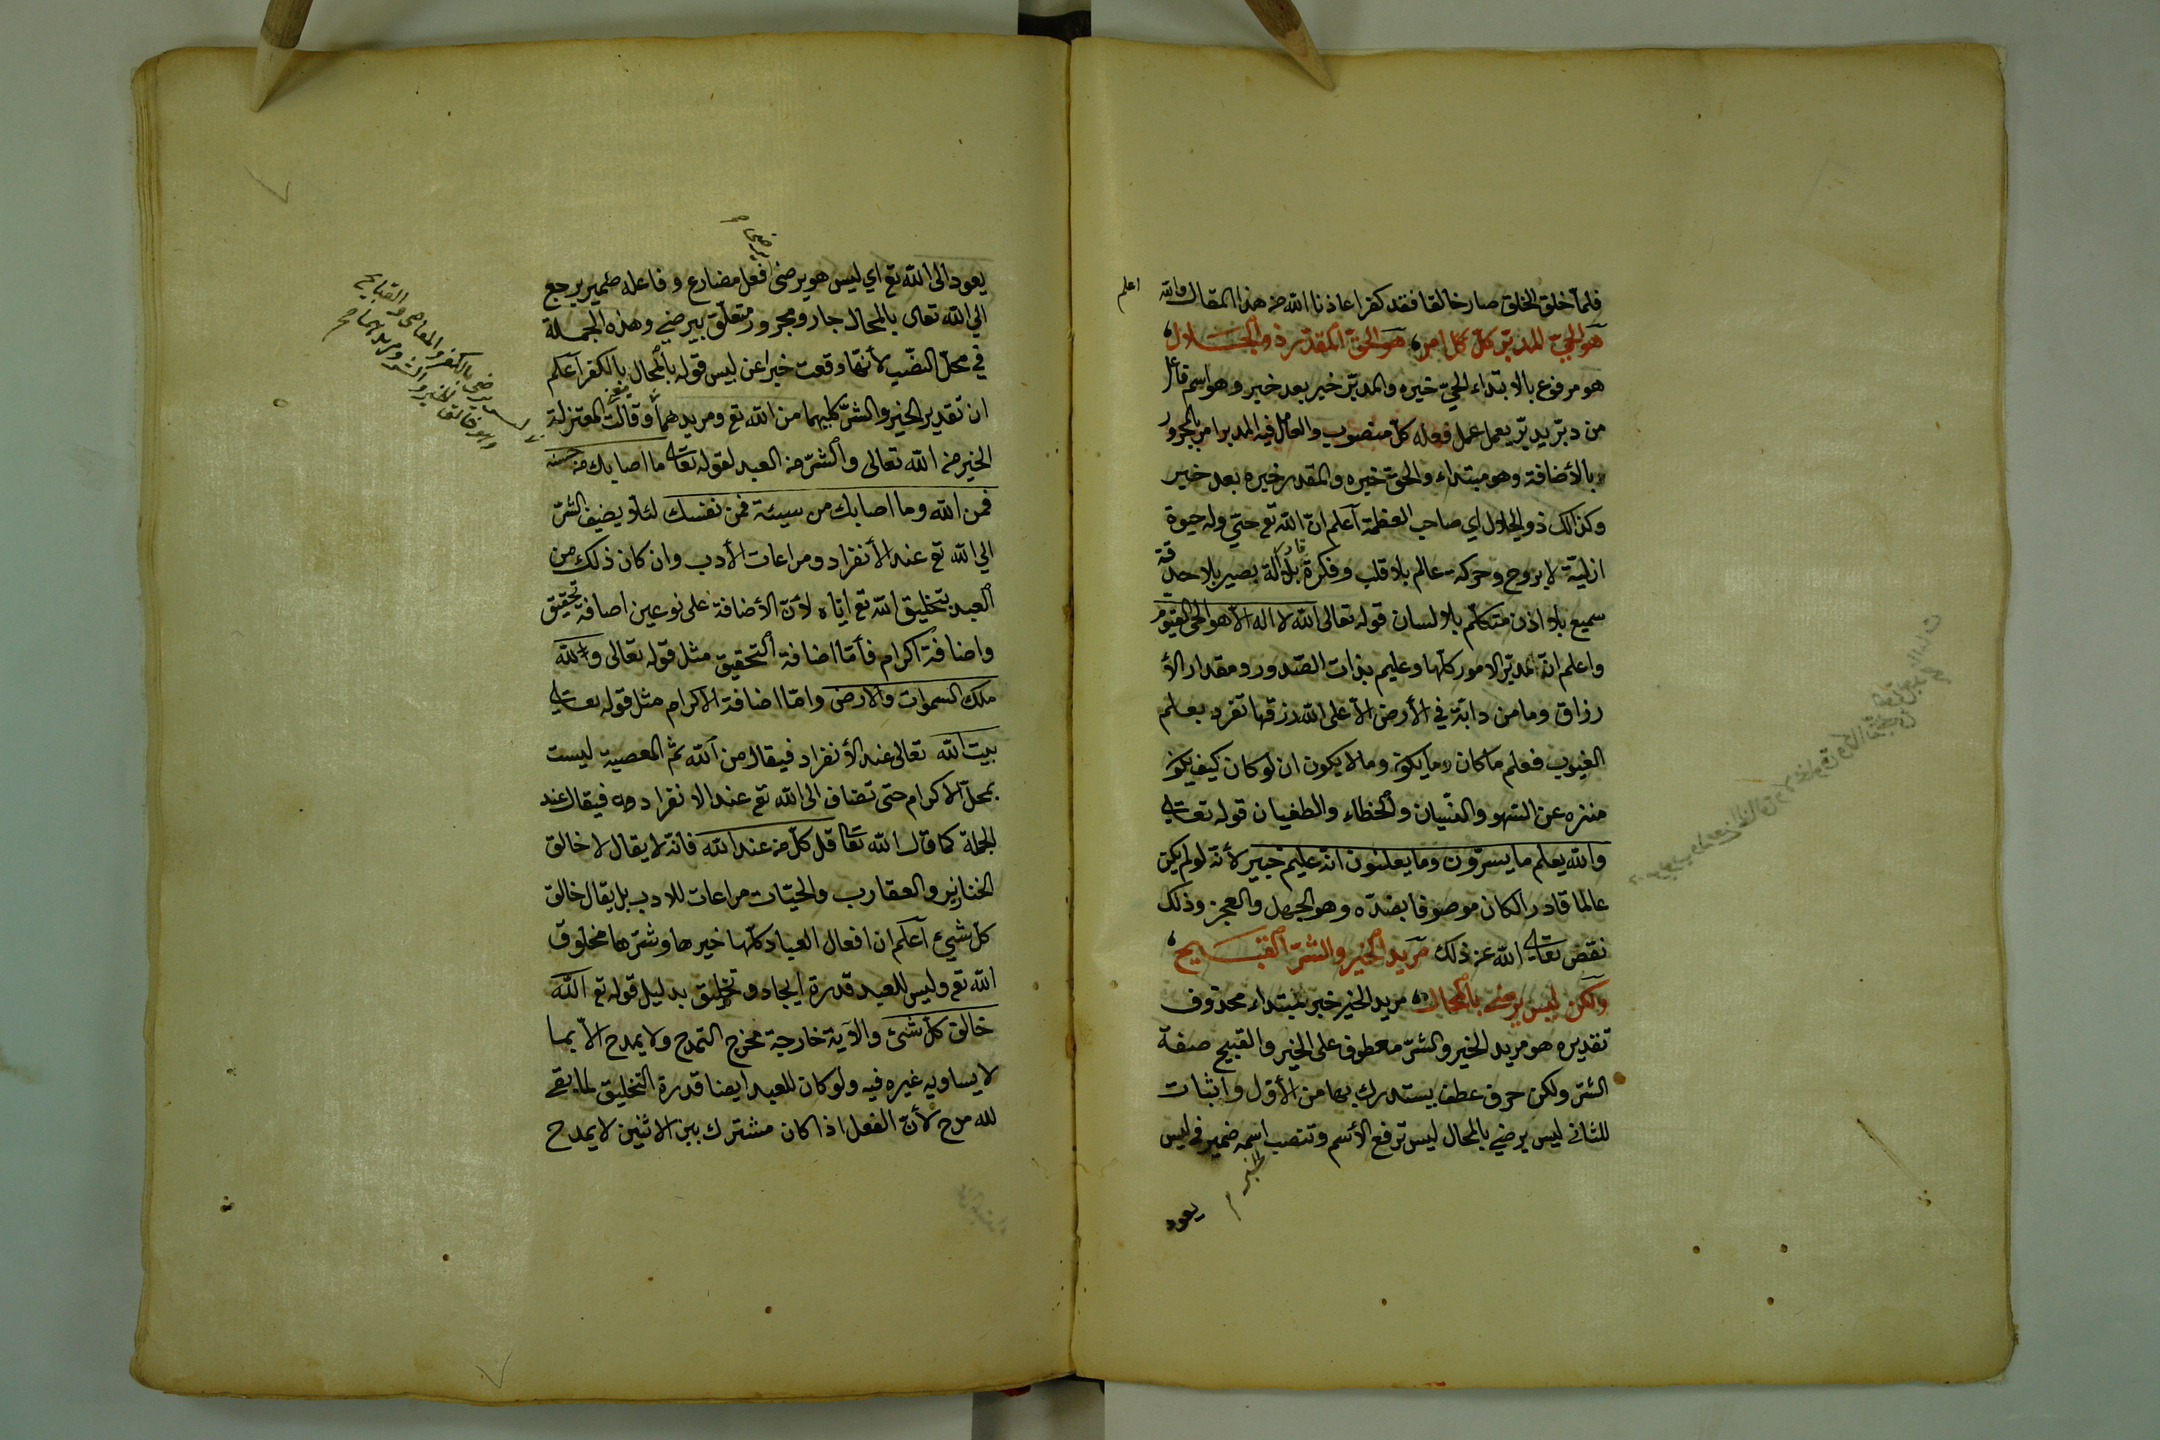 فلما خلق الخلق صار خالقا فقد كفر اعاذنا الله من هذا المقال والله اعلم
هو الحي المدبر كل امر هو الحق المقدر ذو الجلال
هو مرفوع بالابتداء الحي خبره والمدبر خبر بعد خبر وهو اسم فاعل
من دبر يدبر يعمل عمل فعله كل منصوب والعامل فيه المدبر امر بالمجرور
بالأضافة وهو مبتداء والحق خبره والمقدر خبره بعد خبر
وكذالك ذو الجلال اي صاحب العظمة اعلم ان الله تع حي وله حيوة
ازلية لا بروح وحركة عالم بلا قلب وفكرة قادر بلا آلة بصير بلا حدقة
سميع بلا اذن متكلم بلا لسان قوله تعالى الله لا اله الا هو الحي القيوم
واعلم انه مدبر الامور كلها وعليم بذات الصدور ومقدار الأ
رزاق وما من دابة في الأرض الا على الله رزقها تفرد بعلم
الغيوب فعلم ما كان وما يكون وما لا يكون ان لو كان كيف يكون
منزه عن السهو والنسيان والخطاء والطغيان قوله تعالى
والله يعلم ما يسرون وما يعلنون انه عليم خبير لأنه لو لم يكن
عالما قادرا لكان موصوفا بضده وهو الجهل والعجز وذلك
نقض تعالى الله عن ذلك مريد الخير والشر القبيح
ولكن ليس يرضى بالمحال مريد الخير خبر لمبتداء محذوف
تقديره هو مريد الخير والشر معطوف على الخير والقبيح صفة
الشر ولكن حرف عطف يستدرك بها من الأول واثبات
للثاني ليس يرضي بالمحال ليس ترفع الأسم وتنصب الخبر اسمه ضمير في ليس
يعود
يعود الى الله تع اي ليس هو يرضى فعل مضارع وفاعله ضمير يرجع
الي الله تعالى بالمحال جار ومجرور متعلق بيرضي وهذه الجملة
في محل النصب لأنها وقعت خبرا عن ليس قوله بالمحال بالكفر اعلم
ان تقدير الخير والشر كليهما من الله تع ومريدهما وقالت المعتزلة
الخير من الله تعالى والشر من العبد لقوله تعالى ما اصابك من حسنة
فمن الله وما اصابك من سيئة فمن نفسك لئلا يضيف الشر
الي الله تع عند الأنفراد ومراعات الأدب وان كان ذلك من
العبد بتخليق الله تع اياه لأن الأضافة على نوعين اضافة تحقيق
واضافة اكرام فأما اضافة التحقيق مثل قوله تعالى ولله
ملك السموات والارض واما اضافة الاكرام مثل قوله تعالى
بيت الله تعالى عند الأنفراد فيقال من الله ثم المعصية ليست
بمحل الاكرام حتى تضاف الى الله تع عند الانفراد فيقال عند
الجملة كما قال الله تعا قل كل من عند الله فانه لا يقال لا خالق
الخنازير والعقارب والحيات مراعات للادب بل يقال خالق
كل شيء اعلم ان افعال العباد كلها خيرها وشرها مخلوق
الله تع وليس للعبد قدرة ايجاد وتخليق بدليل قوله تع الله
خالق كل شئ والآية خارجة مخرج التمدح ولا يمدح الا بما
لا يساويه غيره فيه ولو كان للعبد ايضا قدرة التخليق لما بقي
لله مدح لأن الفعل اذا كان مشترك بين الاثنين لا يمدح